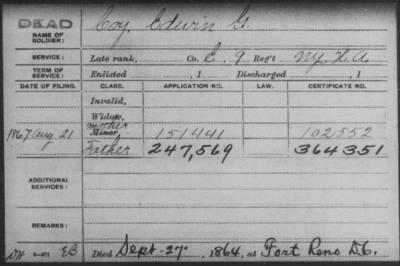 DEAD
NAME OF SOLDIER: Coy, Edwin G.
SERVICE: Late rank, Co. E, 9 Reg't N.Y.H.A.
TERM OF SERVICE: Enlisted , 1 Discharged , 1
DATE OF FILING. CLASS. APPLICATION NO. LAW. CERTIFICATE NO.
Invalid,
Widow,
1867 Aug 21 Mother Minor, 151441 102552
Father 247,569 364351
ADDITIONAL SERVICES:
REMARKS:
Died Sept. 27, 1864, at Fort Reno D.C.